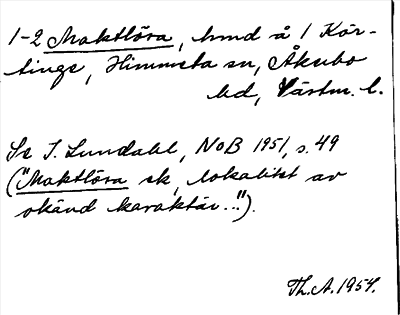 1-2 Maktlöra, hmd å 1 Kär-
linge, Himmeta sn, Åkerbo
hd, Västm. l.
Se I. Lundahl, NoB 1951, s. 49
("Maktlöra sk, lokalitet av
okänd karaktär..").
Th. A. 1954.